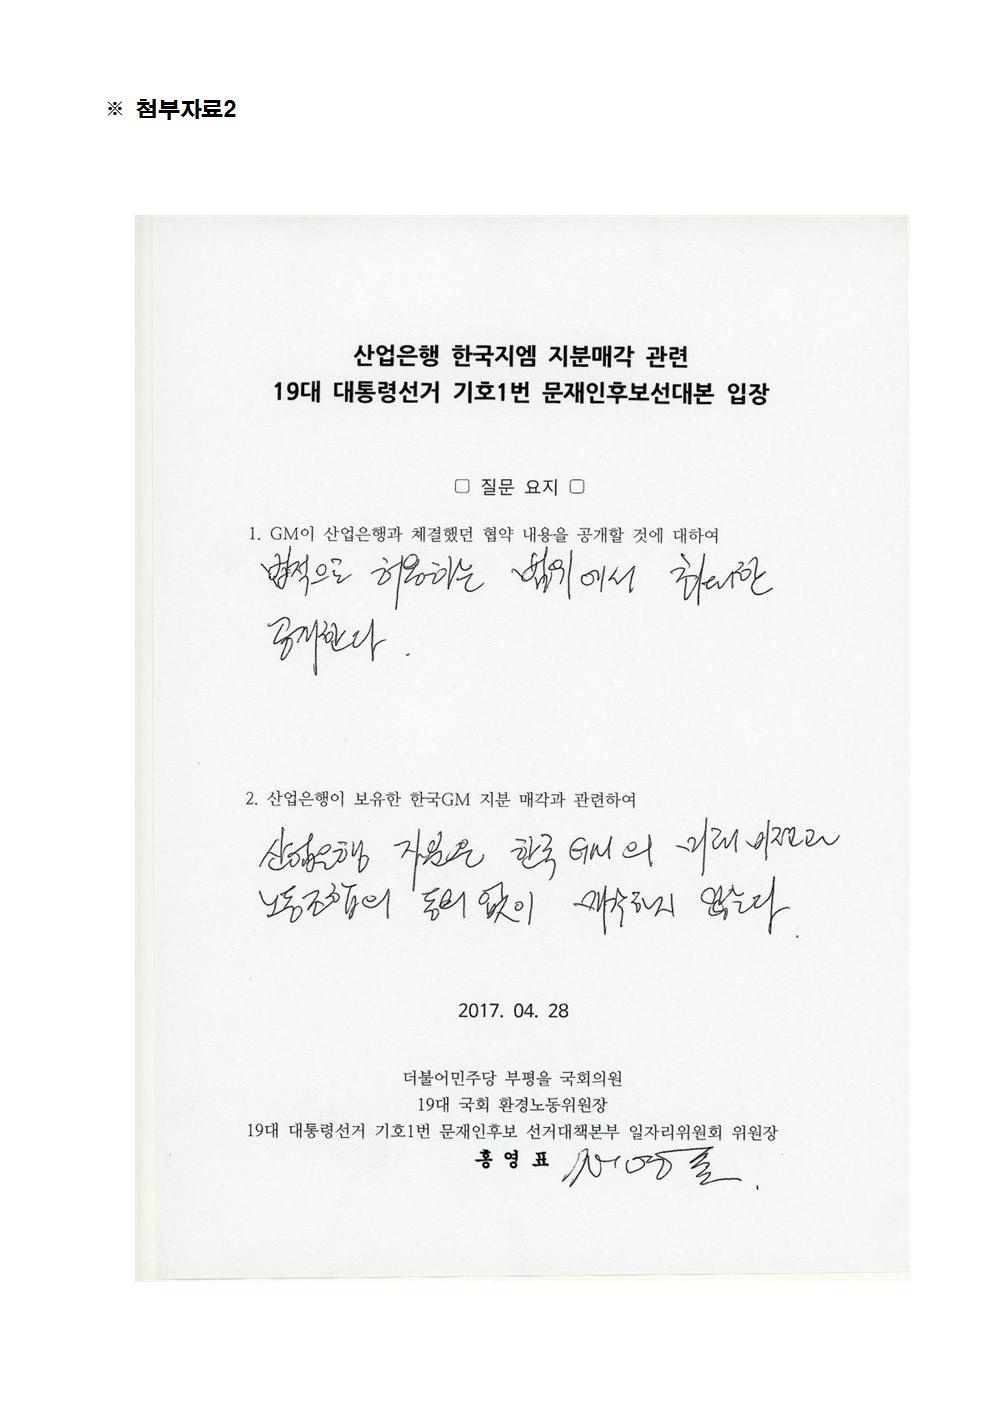 ※ 첨부자료2
산업은행 한국지엠 지분매각 관련
19대 대통령선거 기호1번 문재인후보선대본 입장
▢ 질문 요지 ▢
1. GM이 산업은행과 체결했던 협약 내용을 공개할 것에 대하여
법적으로 허용하는 범위에서 최대한
공개한다.
2. 산업은행이 보유한 한국GM 지분 매각과 관련하여
산업은행 지분은 한국GM의 미래 비전과
노동조합의 동의 없이 매각하지 않는다.
2017. 04. 28
더불어민주당 부평을 국회의원
19대 국회 환경노동위원장
19대 대통령선거 기호1번 문재인후보 선거대책본부 일자리위원회 위원장
홍 영 표